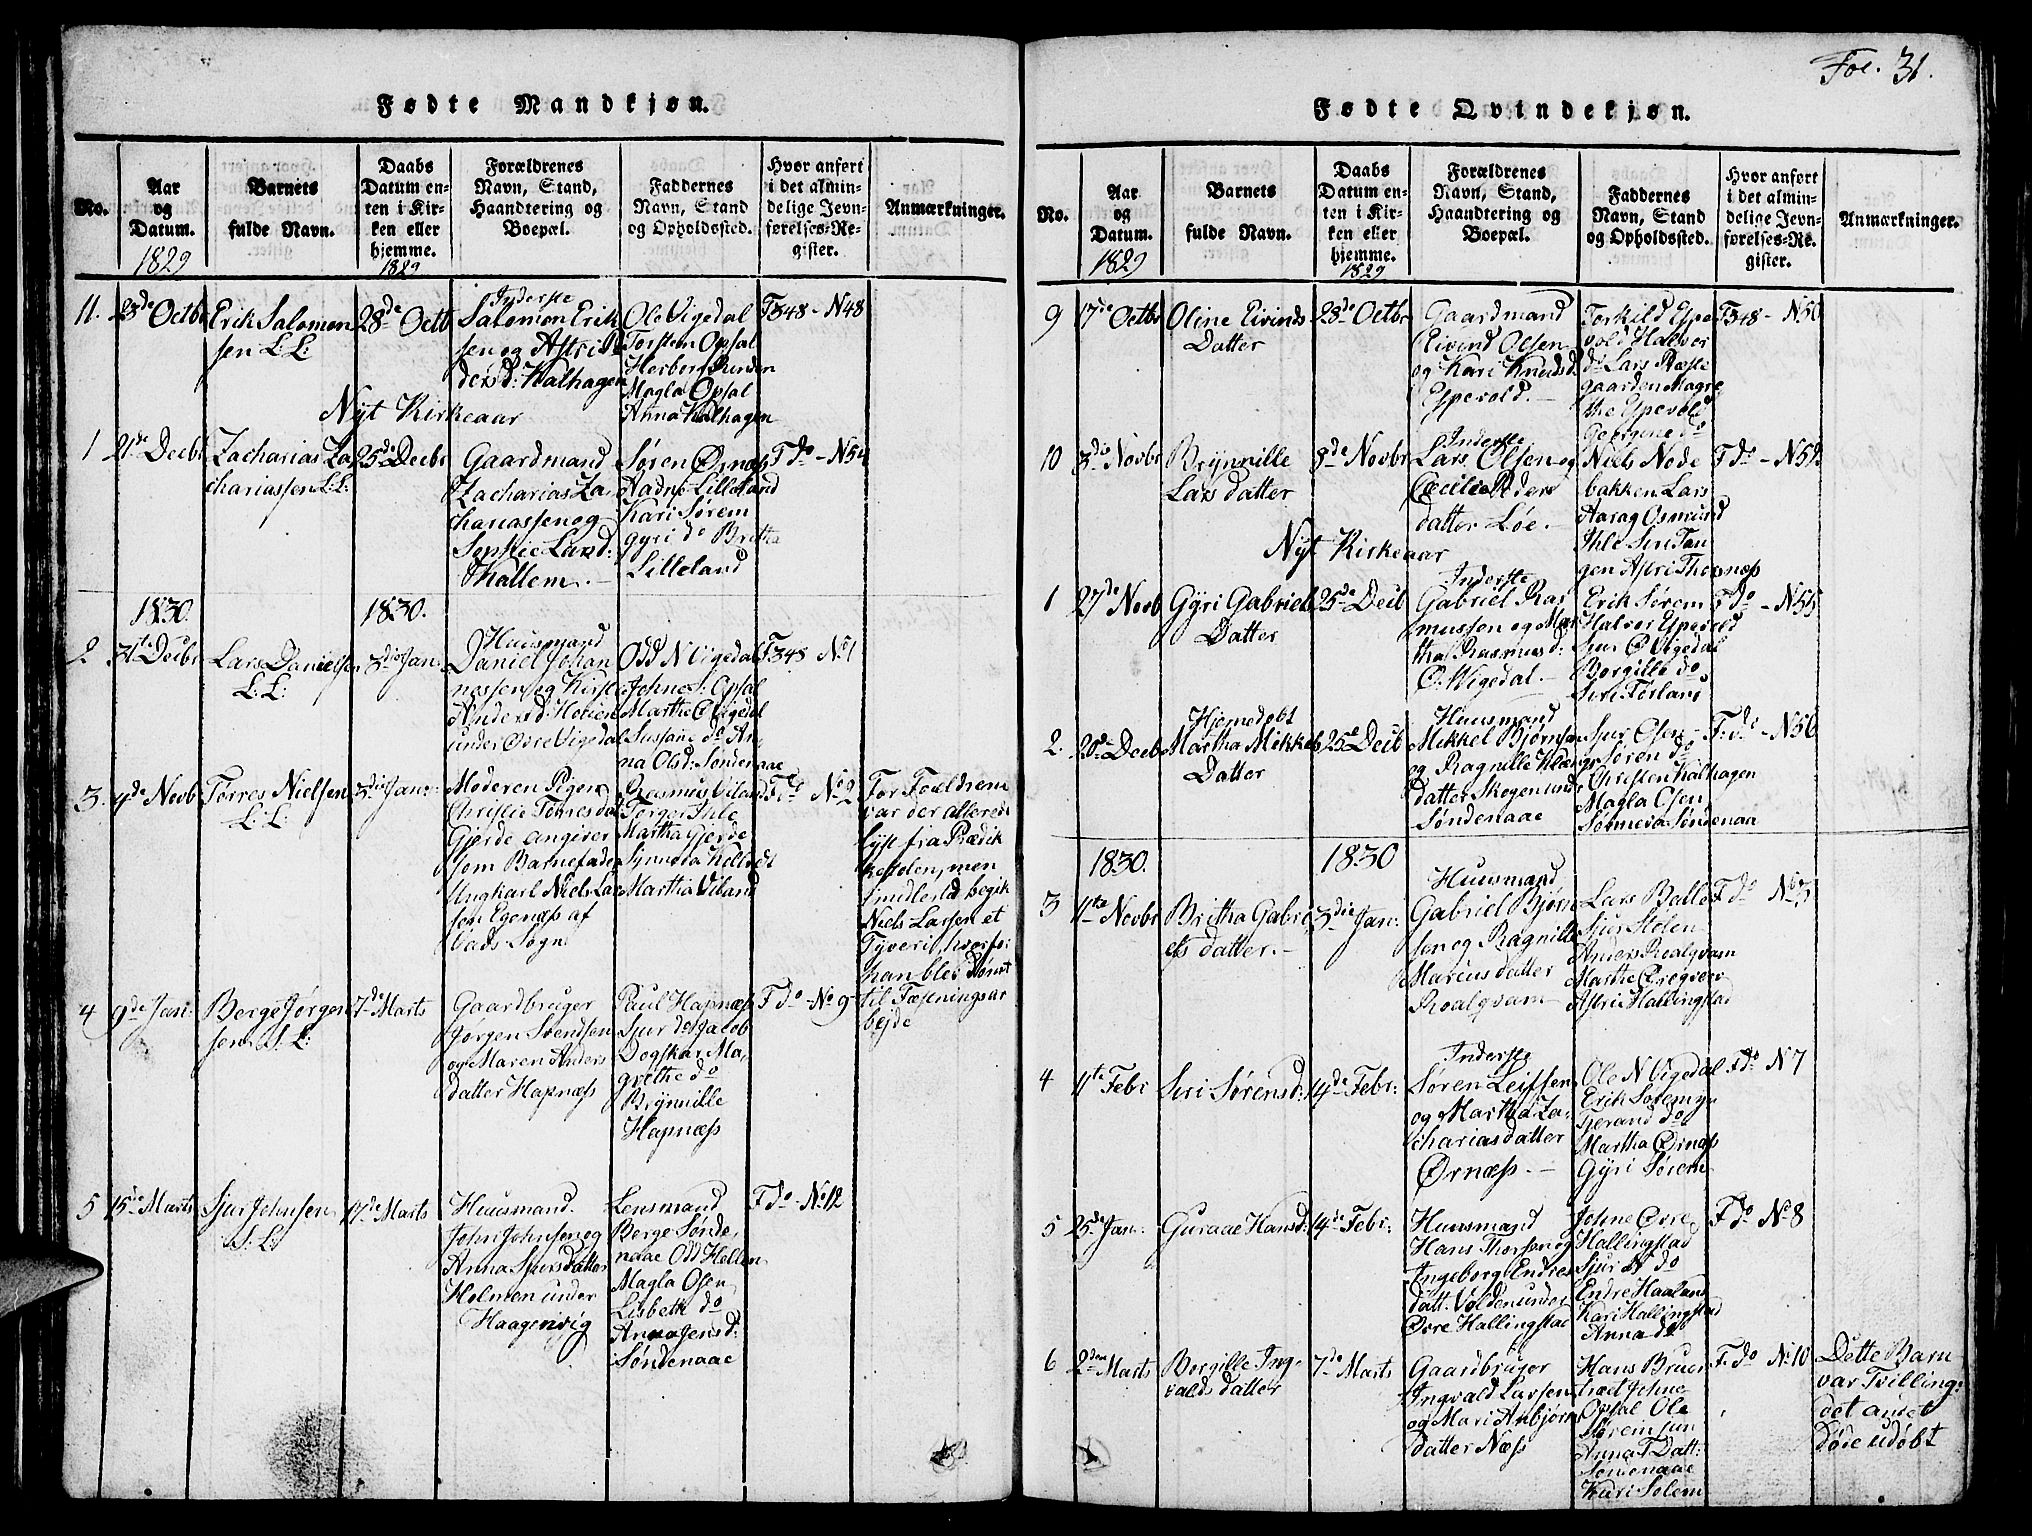 Fol. 31.
Fødte Mandkjøn.
No.
Aar og Datum.
1829
Barnets fulde Navn.
Daabs Datum enten i Kirken eller hjemme.
1829
Forældrenes Navn, Stand, Haandtering og Boepæl.
Faddernes Navn, Stand og Opholdssted.
Hvor anført i det almindelige Jevnførelses-Register.
Anmærkninger.
11. 28de Octbr
Erik Salomonsen L:L:
28de Octb
Inderste
Salomon Erik
sen og Astri
dersd: Kalhagen
Ole Vigedal
Torsten Opsal
Herborg Runden
Magla Opsal
Anna Kalhagen
F348 - N48
Nyt Kirkeaar
1 21de Decbr
Zacharias Za
chariassen L:L:
25de Decbr
Gaardmand
Zacharias Za
chariassen og
Sophie Lard:
Hallem.
Søren Ørnæs
Aadne Lilleland
Kari Sørem
Gyri do Britha
Lilleland
F do - N54
1830.
1830.
2 31te Decbr
Lars Danielsen
L:L:
3die Jan:
Huusmand
Daniel Johan
nessen og Kirste
Andersd: Hoien
under Øvre Vigedal
Odd N Vigedal
Johne S: Opsal
Marthe Ø Vigedal
Sussane do An
na Olsd: Søndenaae
F348 No1
3. 4de Novb
Torres Nielsen
L:L:
3die Jan:
Moderen Pigen
Christie Torresdat
Gjerde angiver
som Barnefader
Ungkarl Niels Lar
sen Egenæss af
Vads Sogn
Rasmus Viland
Torger Ihle
Martha Gjerde
Synneva
Martha Viland
F do No2
For Forældrene
var der allerede
lyst fra Prædik
kestolen, men
imidlertid begik
Niels Larsen et
Tyveri, hvorfor
han blev dømt
til Fæstningsar
bejde
4 9de Jan:
Berge Jørgen
sen S. L:
7de Marts
Gaardbruger
Jørgen Svendsen
og Maren Anders
datter Hapnæss
Paul Hapnæss
Sjur do Jacob
Dogskar Ma
grethe do
Brynnille
Hapnæss
F do - No 9
5 15de Marts
Sjur Johnsen
S. L:
17de Marts
Huusmand
John Johnsen og
Anna Sjursdatter
Holmen under
Haagenvig
Lensmand
Berge Sønde
naae Odd Hellen
Magla Osen
Lisbeth do
Anna Jensd:
Søndenaae
F do - No 12
Fødte Qvindekjøn.
No.
Aar og Datum.
1829
Barnets fulde Navn.
Daabs Datum enten i Kirken eller hjemme.
1829
Forældrenes Navn, Stand, Haandtering og Boepæl.
Faddernes Navn, Stand og Opholdssted.
Hvor anført i det almindelige Jevnførelses-Register.
Anmærkninger.
9 17de Octbr
Oline Eivinds
Datter
28de Octbr
Gaardmand
Eivind Olsen
og Kari Knudsd.
Espevold.
Torkild Espe
vold Halvor
do Lars Næste
gaarden Magre
the Espevold
Georgine do
F348 - N50
10 3die Novbr
Brynnille
Larsdatter
8de Novbr
Inderste
Lars Olsen og
Cecilie Peders
datter Løe.
Niels Node
bakken Lars
Aarag Osmund
Ihle Siri Tan
gen Astri Thornæss
F do - N52
Nyt Kirkeaar
1 27de Novb
Gyri Gabriels
Datter
25de Decb
Inderste
Gabriel Ras
mussen og Mar
tha Rasmusd:
Ø. Vigedal.
Erik Sørem
Halvor Espevold
Sjur Ø Vigedal
Borgille do
Siri Torland
F do - N55
2. 20de Decbr
Hjemedøbt
Martha Mikkels
Datter
25de Decb
Huusmand
Mikkel Bjørnsen
og Ragnille Klæng
datter Skogen under
Søndenaae
Sjur Osen
Søren do
Christen Kalhagen
Magla Osen
Sønneva Søndenaa
F. do - N56
1830.
1830
3 11te Novbr
Britha Gabri
els datter.
3die Jan:
Huusmand
Gabriel Bjørn
sen og Ragnille
Marcus datter
Roalqvam
Lars Balle
Sjur Stølen
Anders Roalqvam
Marthe
Astri Hallingstad
F do No3
4 11te Febr
Siri Sørensd:
14de Febr:
Inderste
Søren Leifsen
og Martha Za
chariasdatter
Ørnæss.
Ole N Vigedal
Erik Sørem
Tjerand do
Martha Ørnæss
Gyri Sørem
F do N 7
5 25de Jan:
Guraae Hansd:
14de Febr:
Huusmand
Hans Thorsen og
Ingeborg Endres
datt. Volden under
Øvre Hallingstad
Johne Øvre
Hallingstad
Sjur do
Endre Haaland
Kari Hallingstad
Anna do
F do No 8
6 2den Marts
Borgille Ing
valds datter
7de Marts
Gaardbruger
Ingvald Larsen
og Mari Anbjørns
datter Næss
Hans Bruer
træt Johne
Opsal Ole
Sørem
Anna T Datt:
Søndenaae
Kari Solem
F. do No 10
Dette Barn
var Tvilling:
det andet
døde udøbt